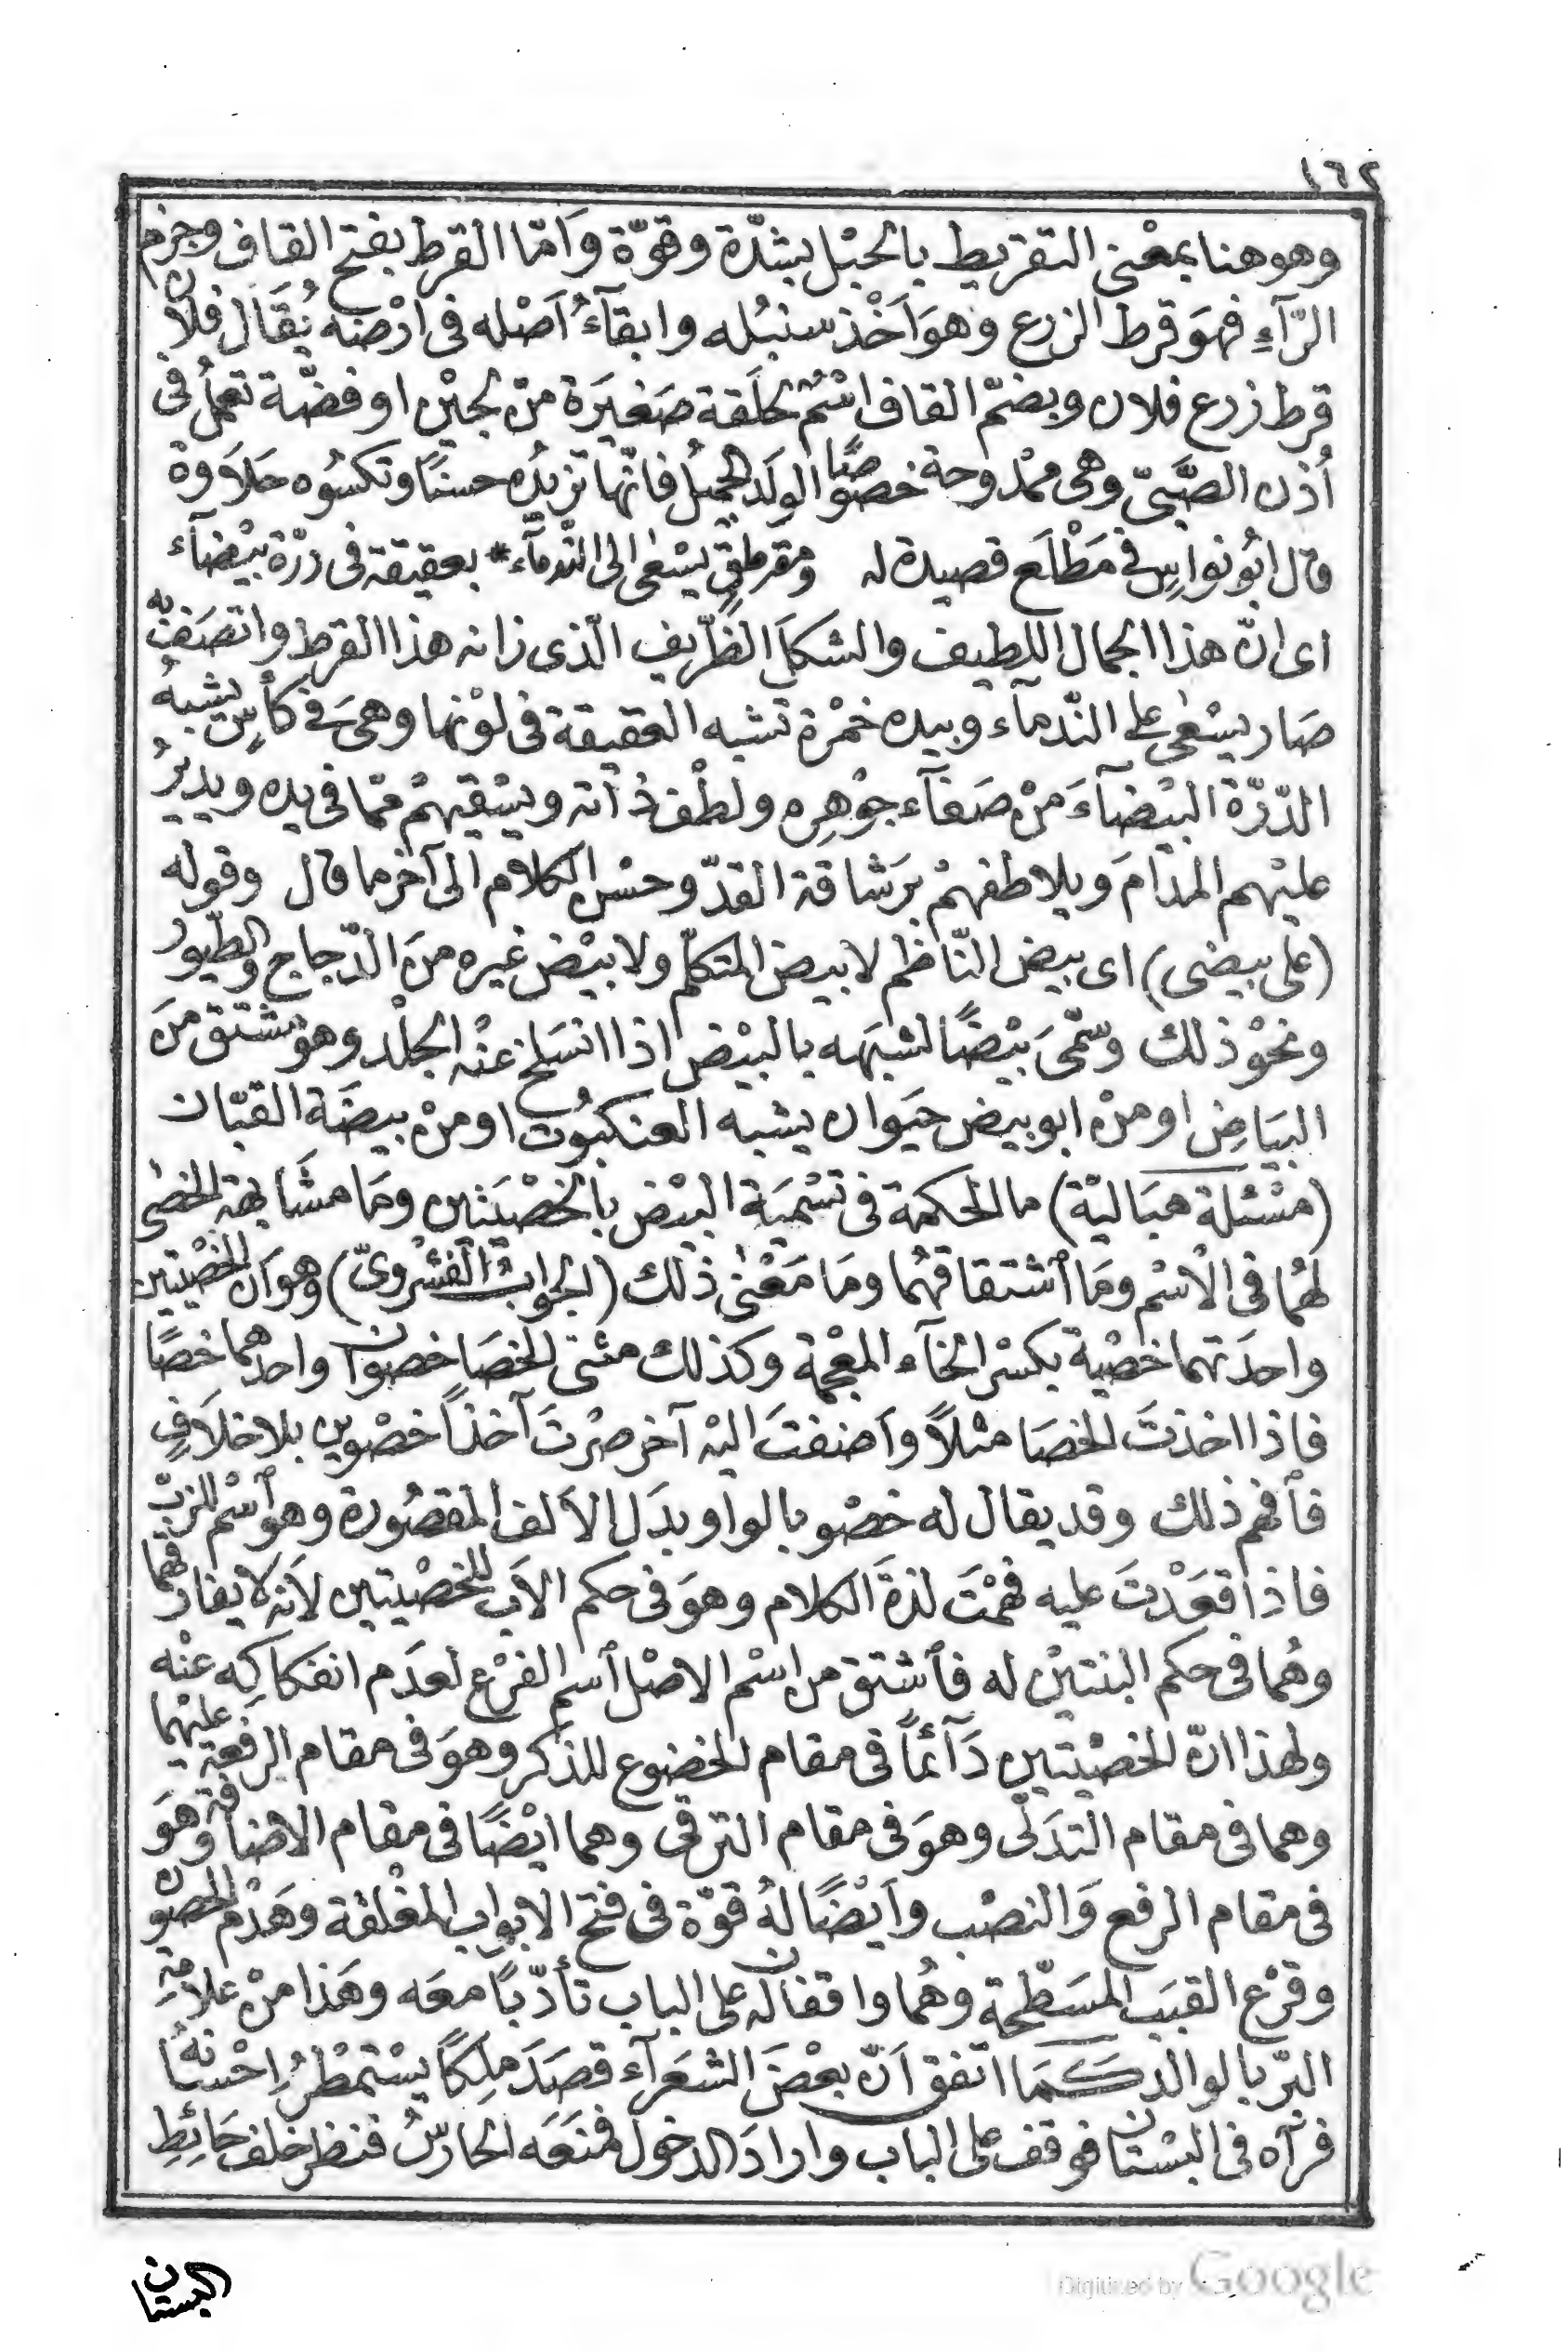 ١٦٢
وهو هنا بمعْنى التقريط بالحبْل بشدّة وقوّة وأمّا القرط بفتح القاف وجزم
الرّآءِ فهوَ قرط الزرع وهوَ أَخْذ سنبُله وابقآءُ أَصْله فى ارْضه يُقَال فلانٌ
قرط زرع فلان وبضمّ القاف اسْمٌ لحلَقة صَغيَرة منْ لجيْن او فضّة تعملُ فى
أُذن الصَّبىّ وهى ممدوحة خصوصًا الولَد الجميلُ فانّها تزيدُه حسنًا وتكسُوه حلاَوةْ
قال ابُو نواسٍ فى مَطْلَع قصيدة له ومقرطقٍ يسْعى الى النّدمآء * بعقيقة فى درّة بيْضآء
اى انّ هذا الجمال اللطيف والشكلَ الظّريف الّذى زانه هذا القرط واتصَف به
صَار يسْعى على النّدمآء وبيده خمْرة تشبه العقيقة فى لوْنها وهىَ فى كأسٍ يشبهُ
الدّرّة البيْضآءَ منْ صَفآء جوْهرِه ولطْف ذاته ويسْقيهمْ ممّا فى يده ويديرُ
عليْهم المدَامَ ويلاطفهمْ برَشاقة القدّ وحسْن الكلام الى آخر ما قال وقوله
(على بيضى) اى بيض النّاظم لا بيض المتكلّم ولا بيْض غيره منَ الدّجاج والطّيور
ونحْوذلك وسمّىَ بيْضًا لشبَهه بالبيْض اذا انسَلخ عنْه الجلْد وهو مشتق منَ
البيَاضِ او منْ ابو بيض حيَوان يشبه العنكبُوت او منْ بيضَة القبّان
(مسْئلة هبَاليّة) ما الحكمة فى تسْميَة البيْض بالخصْيَتَين ومَا مشَابهة الخصْى
لهُما فى الْاسْم ومَا ٱشتقاقهُما ومَا مَعْنى ذٰلك (الجوابُ الْفشْروىّ) وهو أنّ الخصْيتين
واحدَتهما خصْيَة بكسْر الخآء المعْجمة وكذلك مثنى الخصَا خصْوان واحدهما خصًا
فاذا اخذتَ الخصَا مثلاً وأضفتَ اليْه آخر صرْتَ آخذاً خصْوين بلا خلاَفٍ
فٱفهم ذلك وقد يقال له خصْو بالواو بدَل الاَلف المقصُورة وهو ٱسْم للزبّ
فاذا قعَدْتَ عليه فهمْتَ لذةَ الكلام وهوَ فى حكم الاَب للخصْيتين لأنّه لا يفارقهما
وهُما فى حكم البنتيْن له فٱشتق من اسْم الاصْل ٱسم الفرْع لعدَم انفكاكه عنْه
ولهذا انّ الخصْيتين دَآئماً فى مقام الخضوع للذكَر وهوَ فى مقام الرفعَة عليْهما
وهما فى مقام التدَلّى وهوَ فى مقام الترقى وهما ايْضًا فى مقام الاضافة وهوَ
فى مقام الرفع وَالنصْب وأيْضًا لهُ قوّة فى فتح الابواب المغْلقة وهَدْم الحصون
وقرْع القبَب المسَطّحة وهُما واقفان له على الباب تأدّبًا معَه وهَذا منْ علامَة
البرّ بالوالد كَمَا اتّفق اَنّ بعْضَ الشعَرآء قصَدَ ملِكاً يسْتمْطرُ اِحْسَانهُ
فرآه فى البسْتان فوقف على الباب وارادَ الدخول فمنَعَه الحارسُ فنظر خلف حَائِطِ
البستان
Digitized by Google